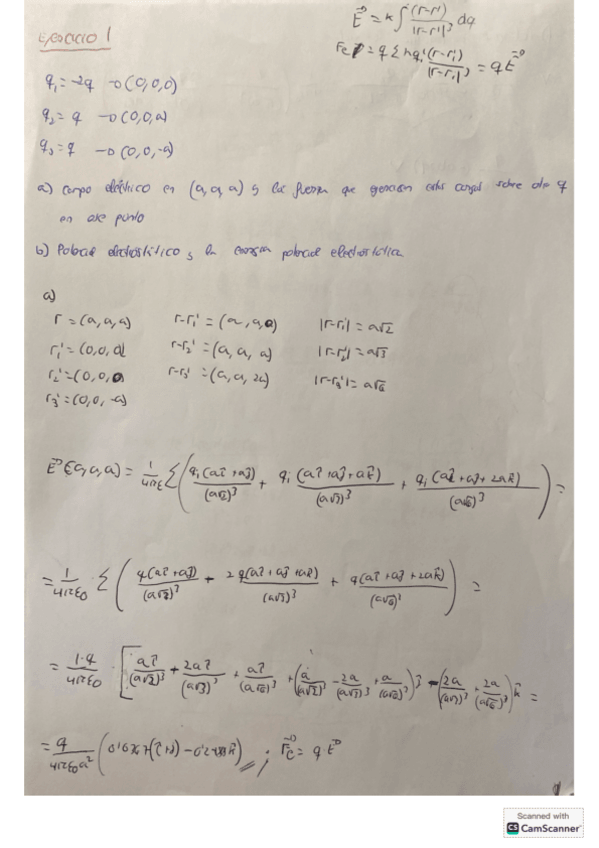 Ejercicio 1
E⃗ = k ∫ (r-r') / |r-r'|³ dq
q₁ = -2q → (0,0,0)
Fe = q Σ k qᵢ (r-rᵢ') / |r-rᵢ'|³ = q E⃗
q₂ = q → (0,0,a)
q₃ = q → (0,0,-a)
a) Campo eléctrico en (a,a,a) y la fuerza que generan estas cargas sobre otra q
en ese punto
b) Potencial electrostático y la energía potencial electrostática
a)
r = (a,a,a) r-r₁' = (a,a,0) |r-r₁'| = a√2
r₁' = (0,0,a) r-r₂' = (a,a,a) |r-r₂'| = a√3
r₂' = (0,0,0) r-r₃' = (a,a,2a) |r-r₃'| = a√6
r₃' = (0,0,-a)
E⃗(a,a,a) = 1/4πε Σ ( qᵢ(aî+aĵ)/(a√2)³ + qᵢ(aî+aĵ+ak̂)/(a√3)³ + qᵢ(aî+aĵ+2ak̂)/(a√6)³ ) =
= 1/4πε₀ · Σ ( q(aî+aĵ)/(a√2)³ + 2q(aî+aĵ+ak̂)/(a√3)³ + q(aî+aĵ+2ak̂)/(a√6)³ ) =
= 1·q/4πε₀ · [ aî/(a√2)³ + 2aî/(a√3)³ + aî/(a√6)³ + ( a/(a√2)³ - 2a/(a√3)³ + a/(a√6)³ ) ĵ - ( 2a/(a√3)³ + 2a/(a√6)³ ) k̂ =
= q/4πε₀a² ; F⃗e = q · E⃗
Scanned with
CS CamScanner